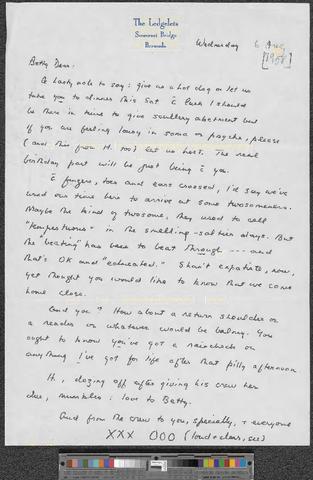 The Ledgelets
Somerset Bridge
Bermuda
Wednesday 6 Aug.
[1958]
Betty Dear:
A hasty note to say: give us a hot dog or let us
take you to dinner this Sat. c̄ luck I should
be there in time to give scullery abetment but
if you are feeling lousy in soma or psyche, please
(and this from H. too) let us host. The real
birthday part will be just being c̄ you.
c̄ fingers, toes and ears crossed, I'd say we've
used our time here to arrive at some twosomeness.
Maybe the kind of twosome, they used to call
"tempestuous" in the smelling-salt era always. But
the "beating" has been to beat through --- and
that's OK and "educated." Shan't expatiate, now,
yet thought you would like to know that we come
home close.
And you? How about a return shoulder or
a reacher or whatever would be balmy. You
ought to know you've got a raincheck on
anything I've got for life after that pilly afternoon.
H., dozing off after giving his crew her
due, mumbles: love to Betty.
And from the crew to you, specially, + everyone
XXX OOO (loud + clear, see)